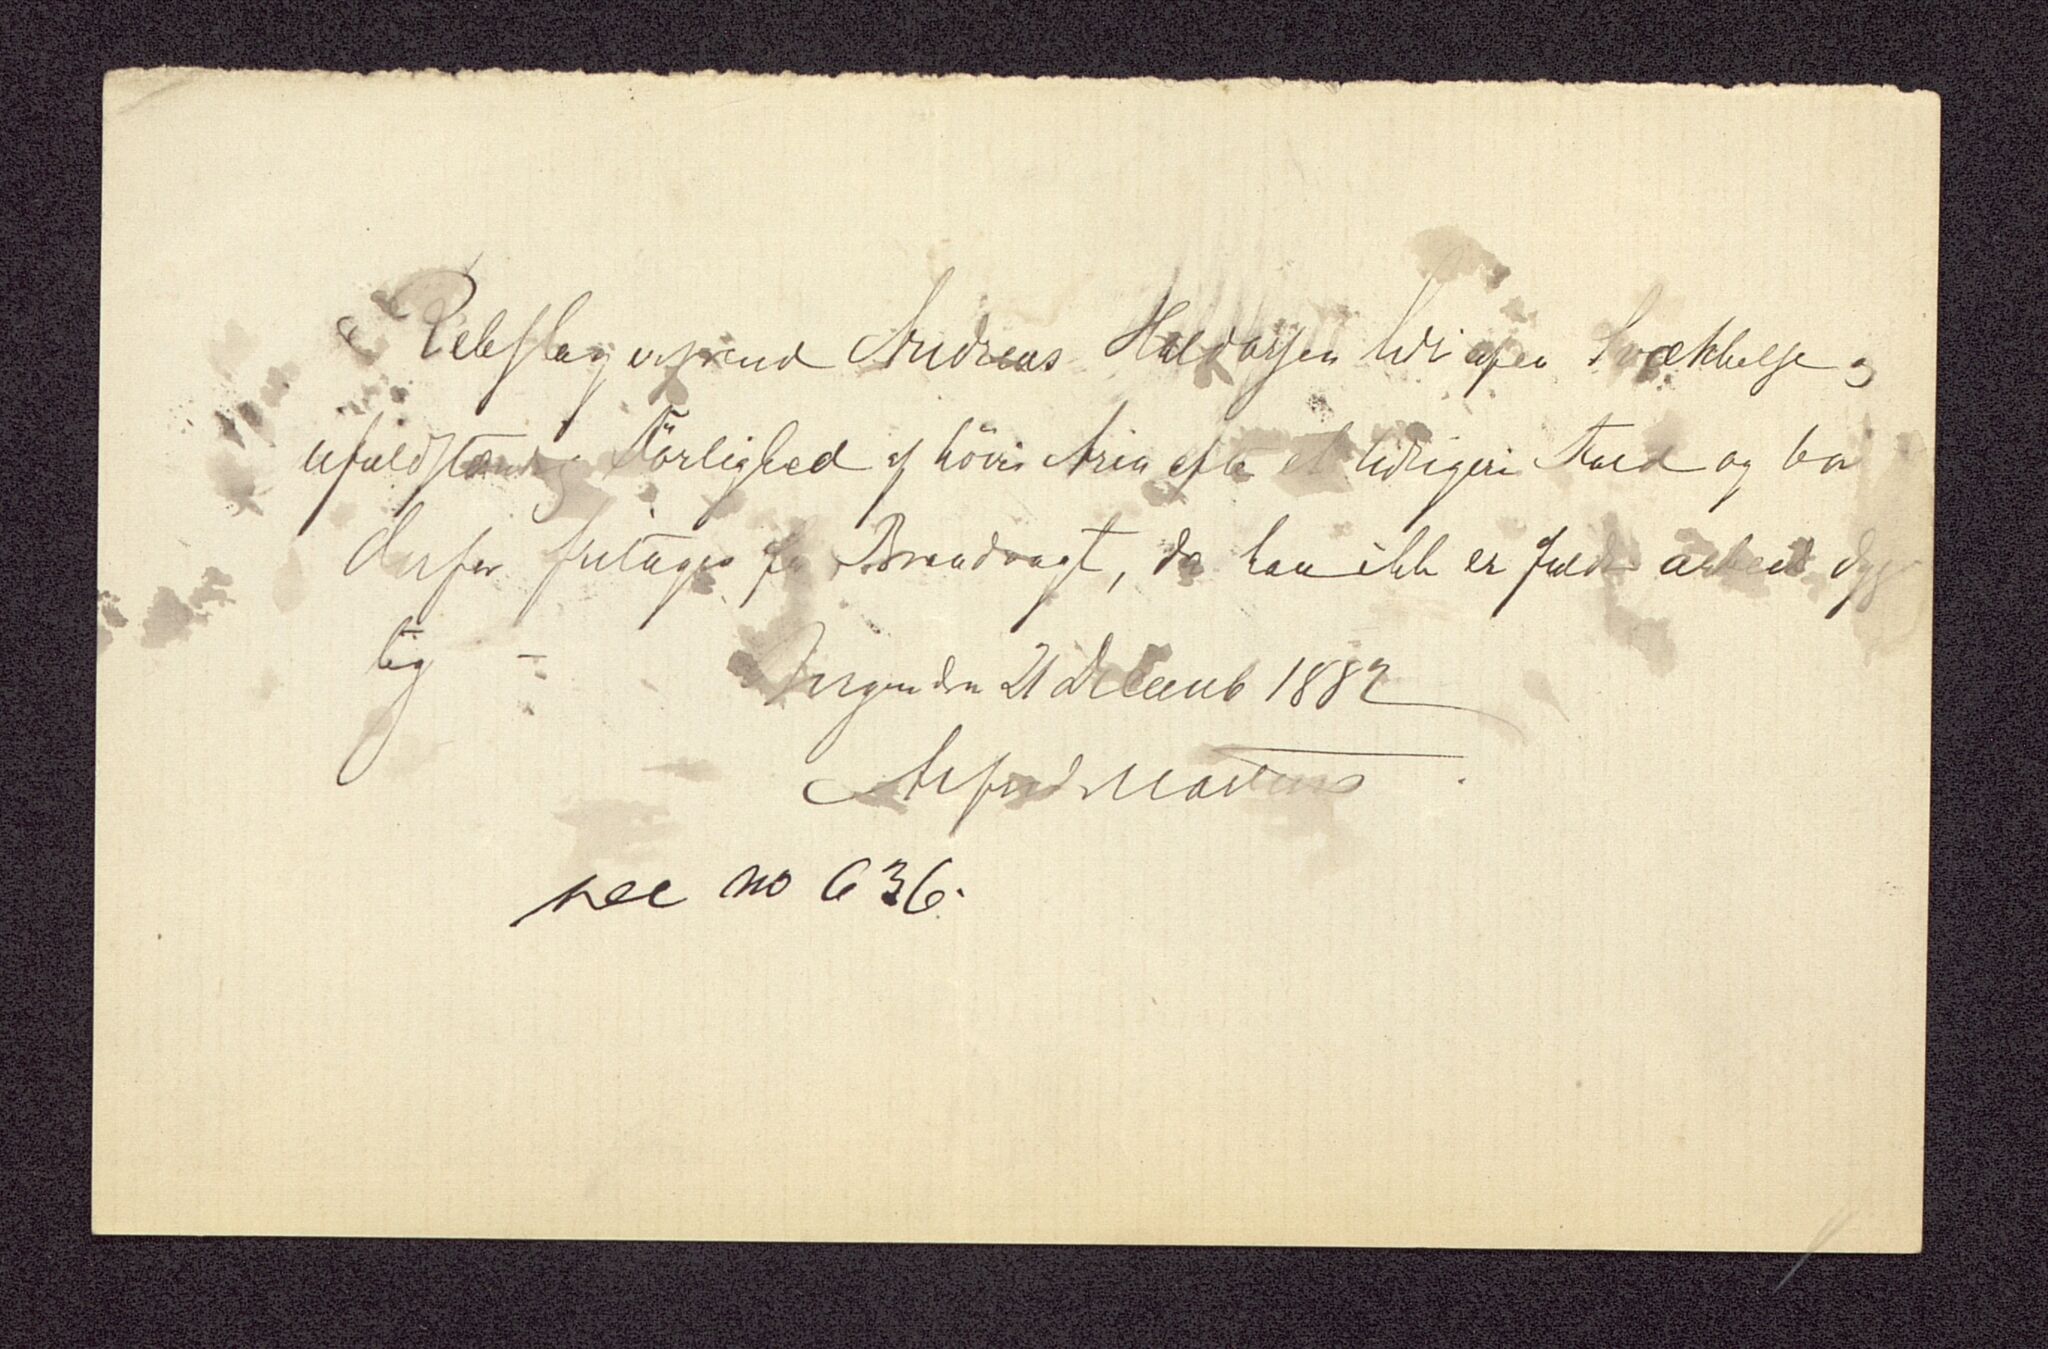 Rebslagersvend Andreas Haldorsen lider af en Svækkelse og
ufuldstændig Førlighed af høire Arm efter et tidligere Fald og bør
derfor fritages for Brandvagt, da han ikke er fuldt arbeidsdyg
tig –
Bergen den 21 Decemb 1882
Alfred Martens
see no 636.